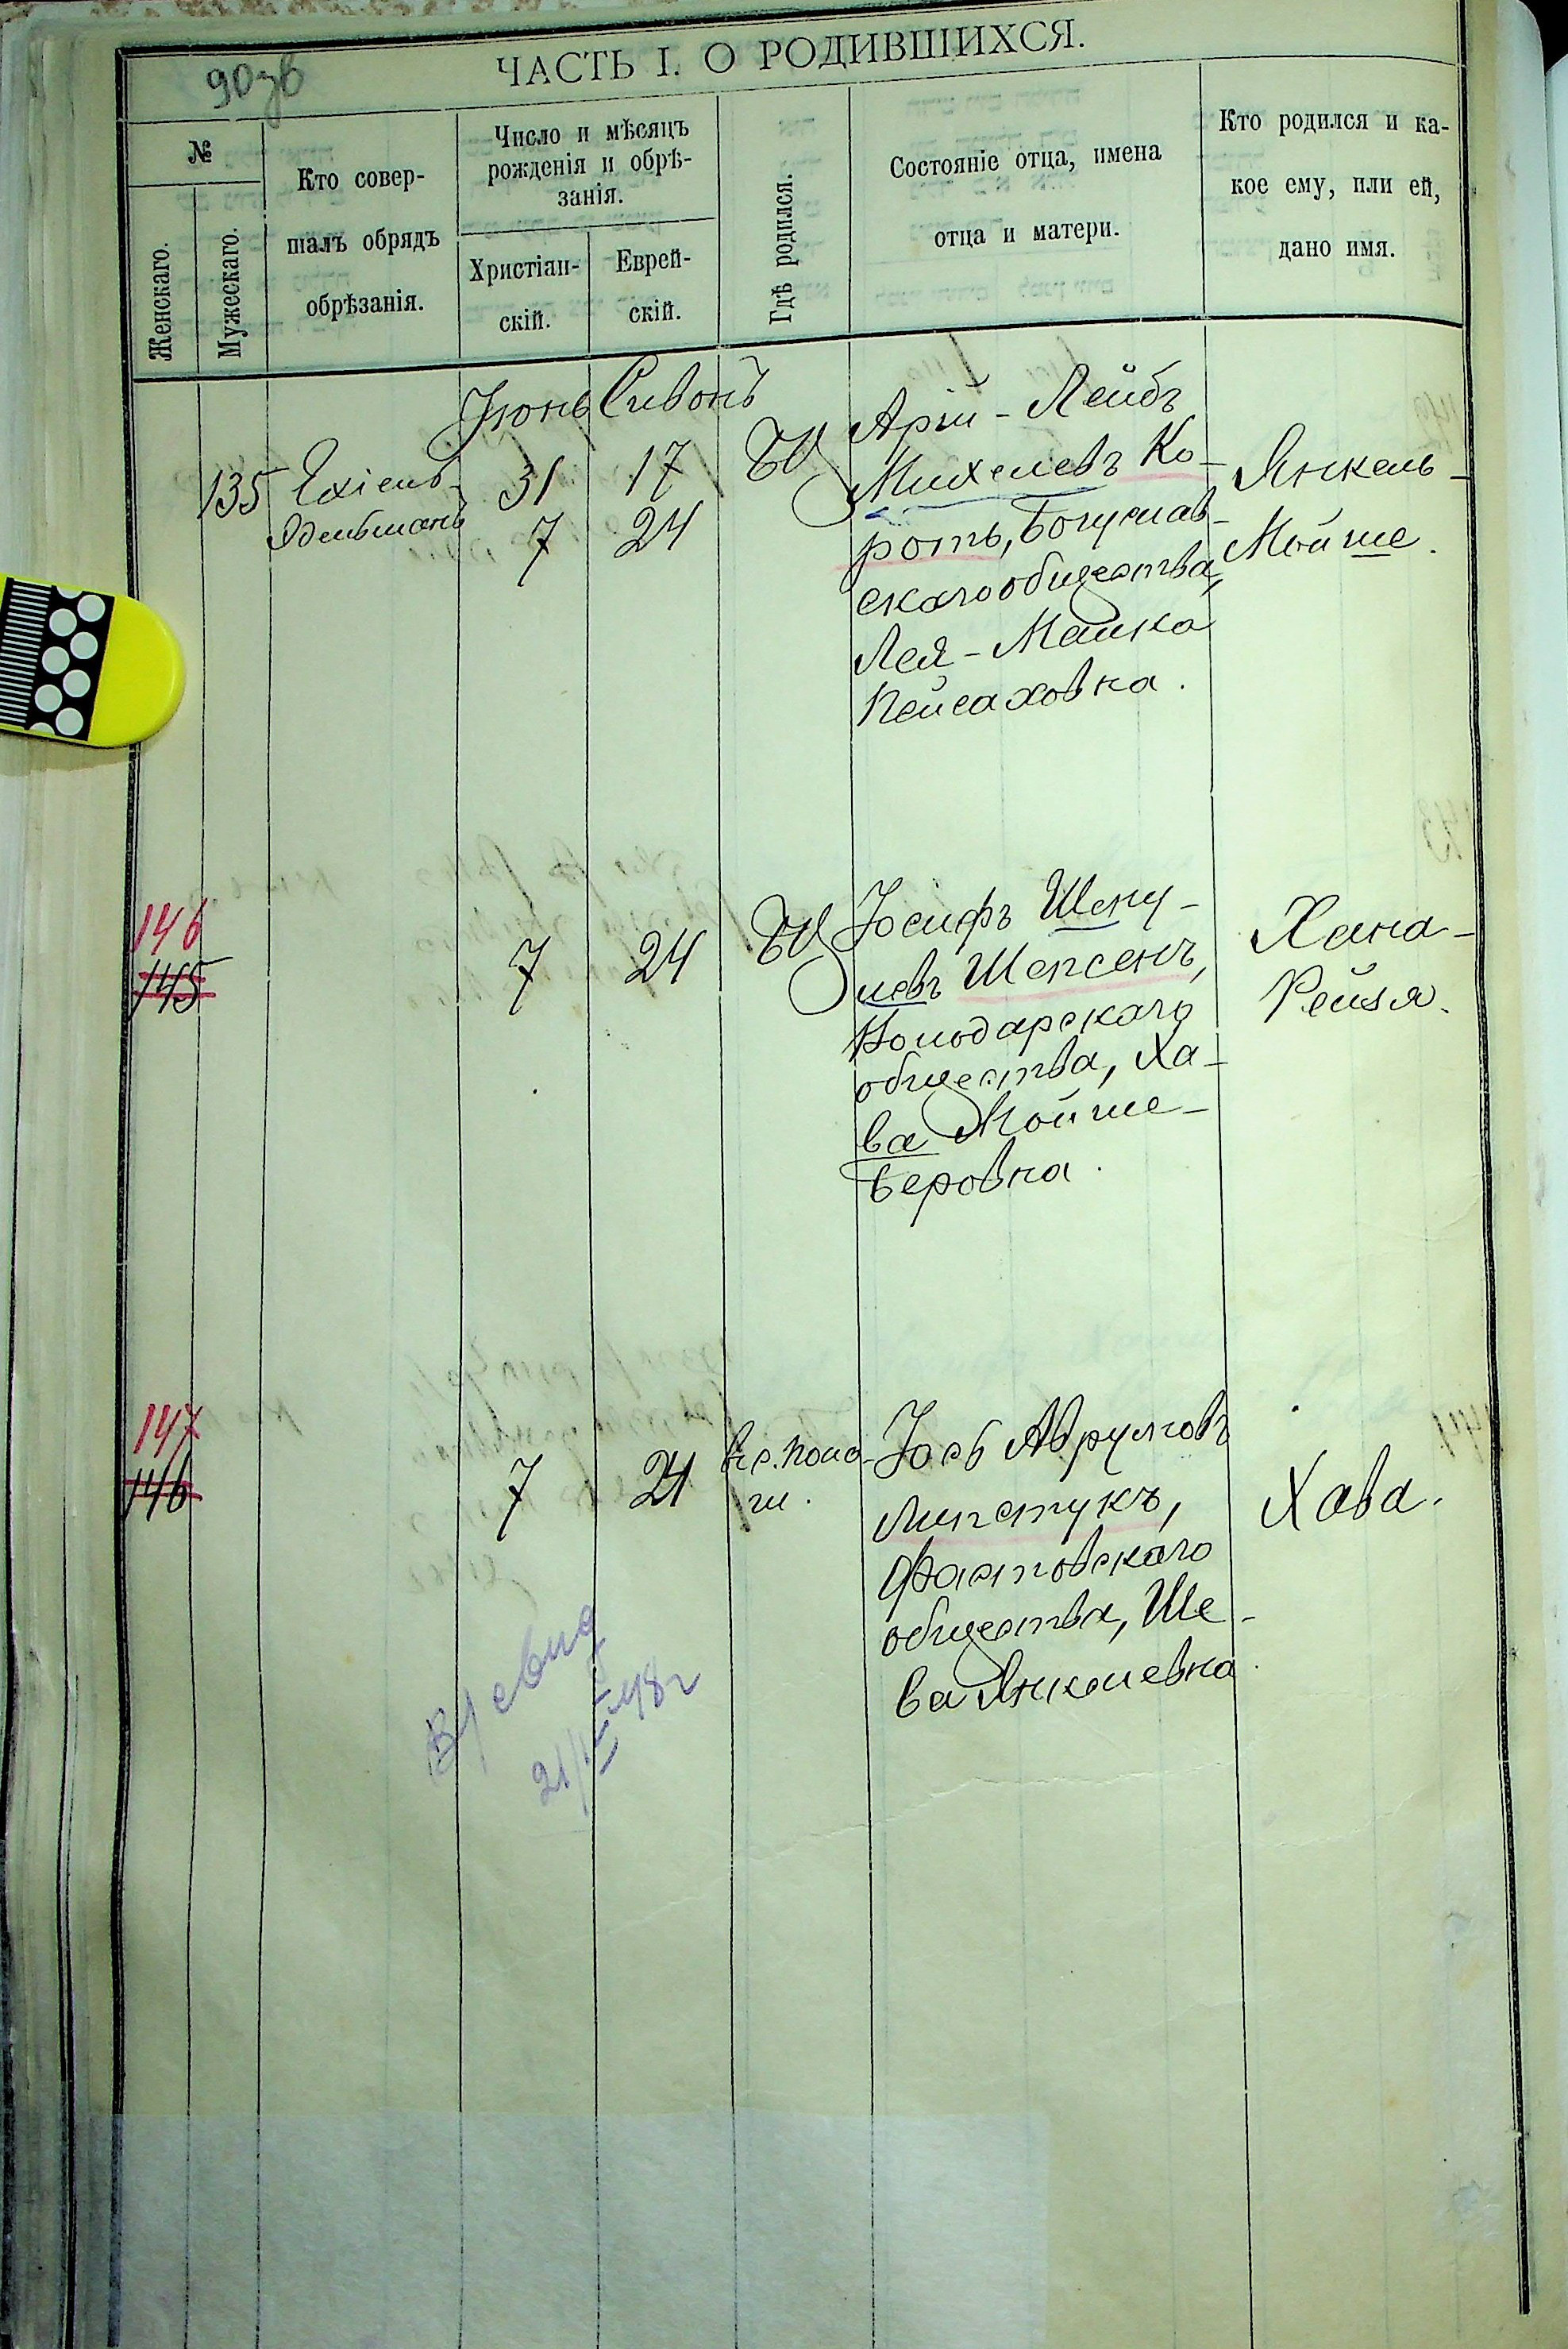 90зв
ЧАСТЬ I. О РОДИВШИХСЯ.
№
Женскаго.
Мужескаго.
Кто совер-
шалъ обрядъ
обрѣзанія.
Число и мѣсяцъ
рожденія и обрѣ-
занія.
Христіан-
скій.
Еврей-
скій.
Гдѣ родился.
Состояніе отца, имена
отца и матери.
Кто родился и ка-
кое ему, или ей,
дано имя.
Іюнь Сивонъ
135 Ехіель
Эдельманъ
31 17
7 24
Арій - Лейбъ
Михелевъ Ко-
ротъ, Богуслав-
скаго общества,
Лея - Малка
Пейсаховна.
Янкель-
Мойше.
146
145
7 24
Іосифъ Шму-
левъ Шепсенъ,
Володарскаго
общества, Ха-
ва Мойше-
Беровна.
Хана-
Рейзя.
147
146
7 24
Іось Аврумовъ
Липстукъ,
Фастовскаго
общества, Ше-
ва Янкелевна.
Хава.